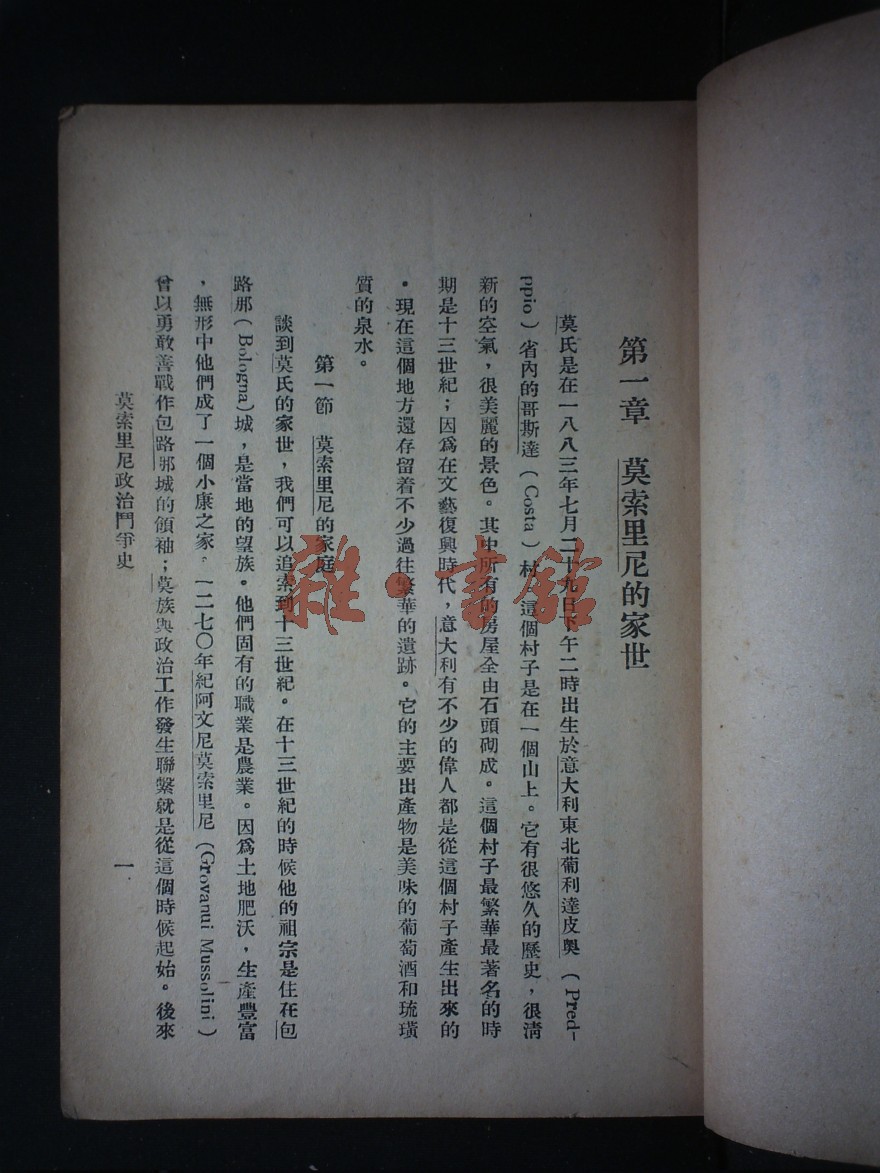 第一章　莫索里尼的家世
莫氏是在一八八三年七月二十九日下午二時出生於意大利東北葡利達皮奧（Pred-
ppio）省內的哥斯達（Costa）村。這個村子是在一個山上。它有很悠久的歷史，很淸
新的空氣，很美麗的景色。其中所有的房屋全由石頭砌成。這個村子最繁華最著名的時
期是十三世紀；因爲在文藝復興時代，意大利有不少的偉人都是從這個村子產生出來的
。現在這個地方還存留着不少過往繁華的遺跡。它的主要出產物是美味的葡萄酒和琉璜
質的泉水。
第一節　莫索里尼的家庭
談到莫氏的家世，我們可以追索到十三世紀。在十三世紀的時候他的祖宗是住在包
路那（Bologna）城，是當地的望族。他們固有的職業是農業。因爲土地肥沃，生產豐富
，無形中他們成了一個小康之家。一二七〇年紀阿文尼莫索里尼（Grovanui Mussolini）
曾以勇敢善戰作包路那城的領袖；莫族與政治工作發生聯繫就是從這個時候起始。後來
莫索里尼政治鬥爭史
一
雜·書館